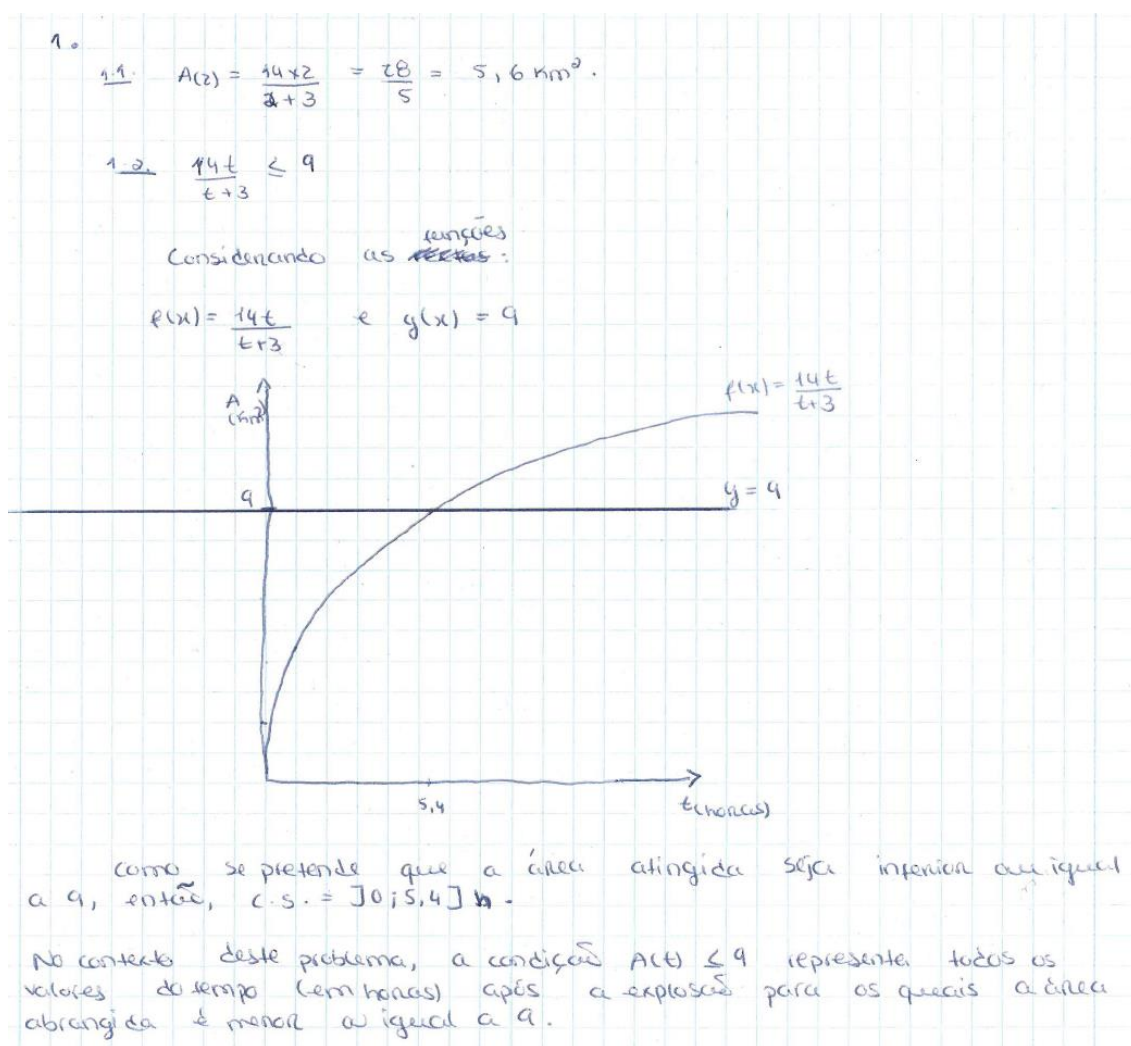 1.
1.1. A(2) = 14×2 / 2+3 = 28/5 = 5,6 Km².
1.2. 14t / t+3 ≤ 9
funções
Considerando as :
f(x) = 14t / t+3 e g(x) = 9
f(x) = 14t / t+3
A (Km²)
9
y = 9
5,4
t(horas)
como se pretende que a área atingida seja inferior ou igual
a 9, então, C.S. = ]0;5,4] h.
No contexto deste problema, a condição A(t) ≤ 9 representa todos os
valores do tempo (em horas) após a explosão para os quais a área
abrangida é menor ou igual a 9.